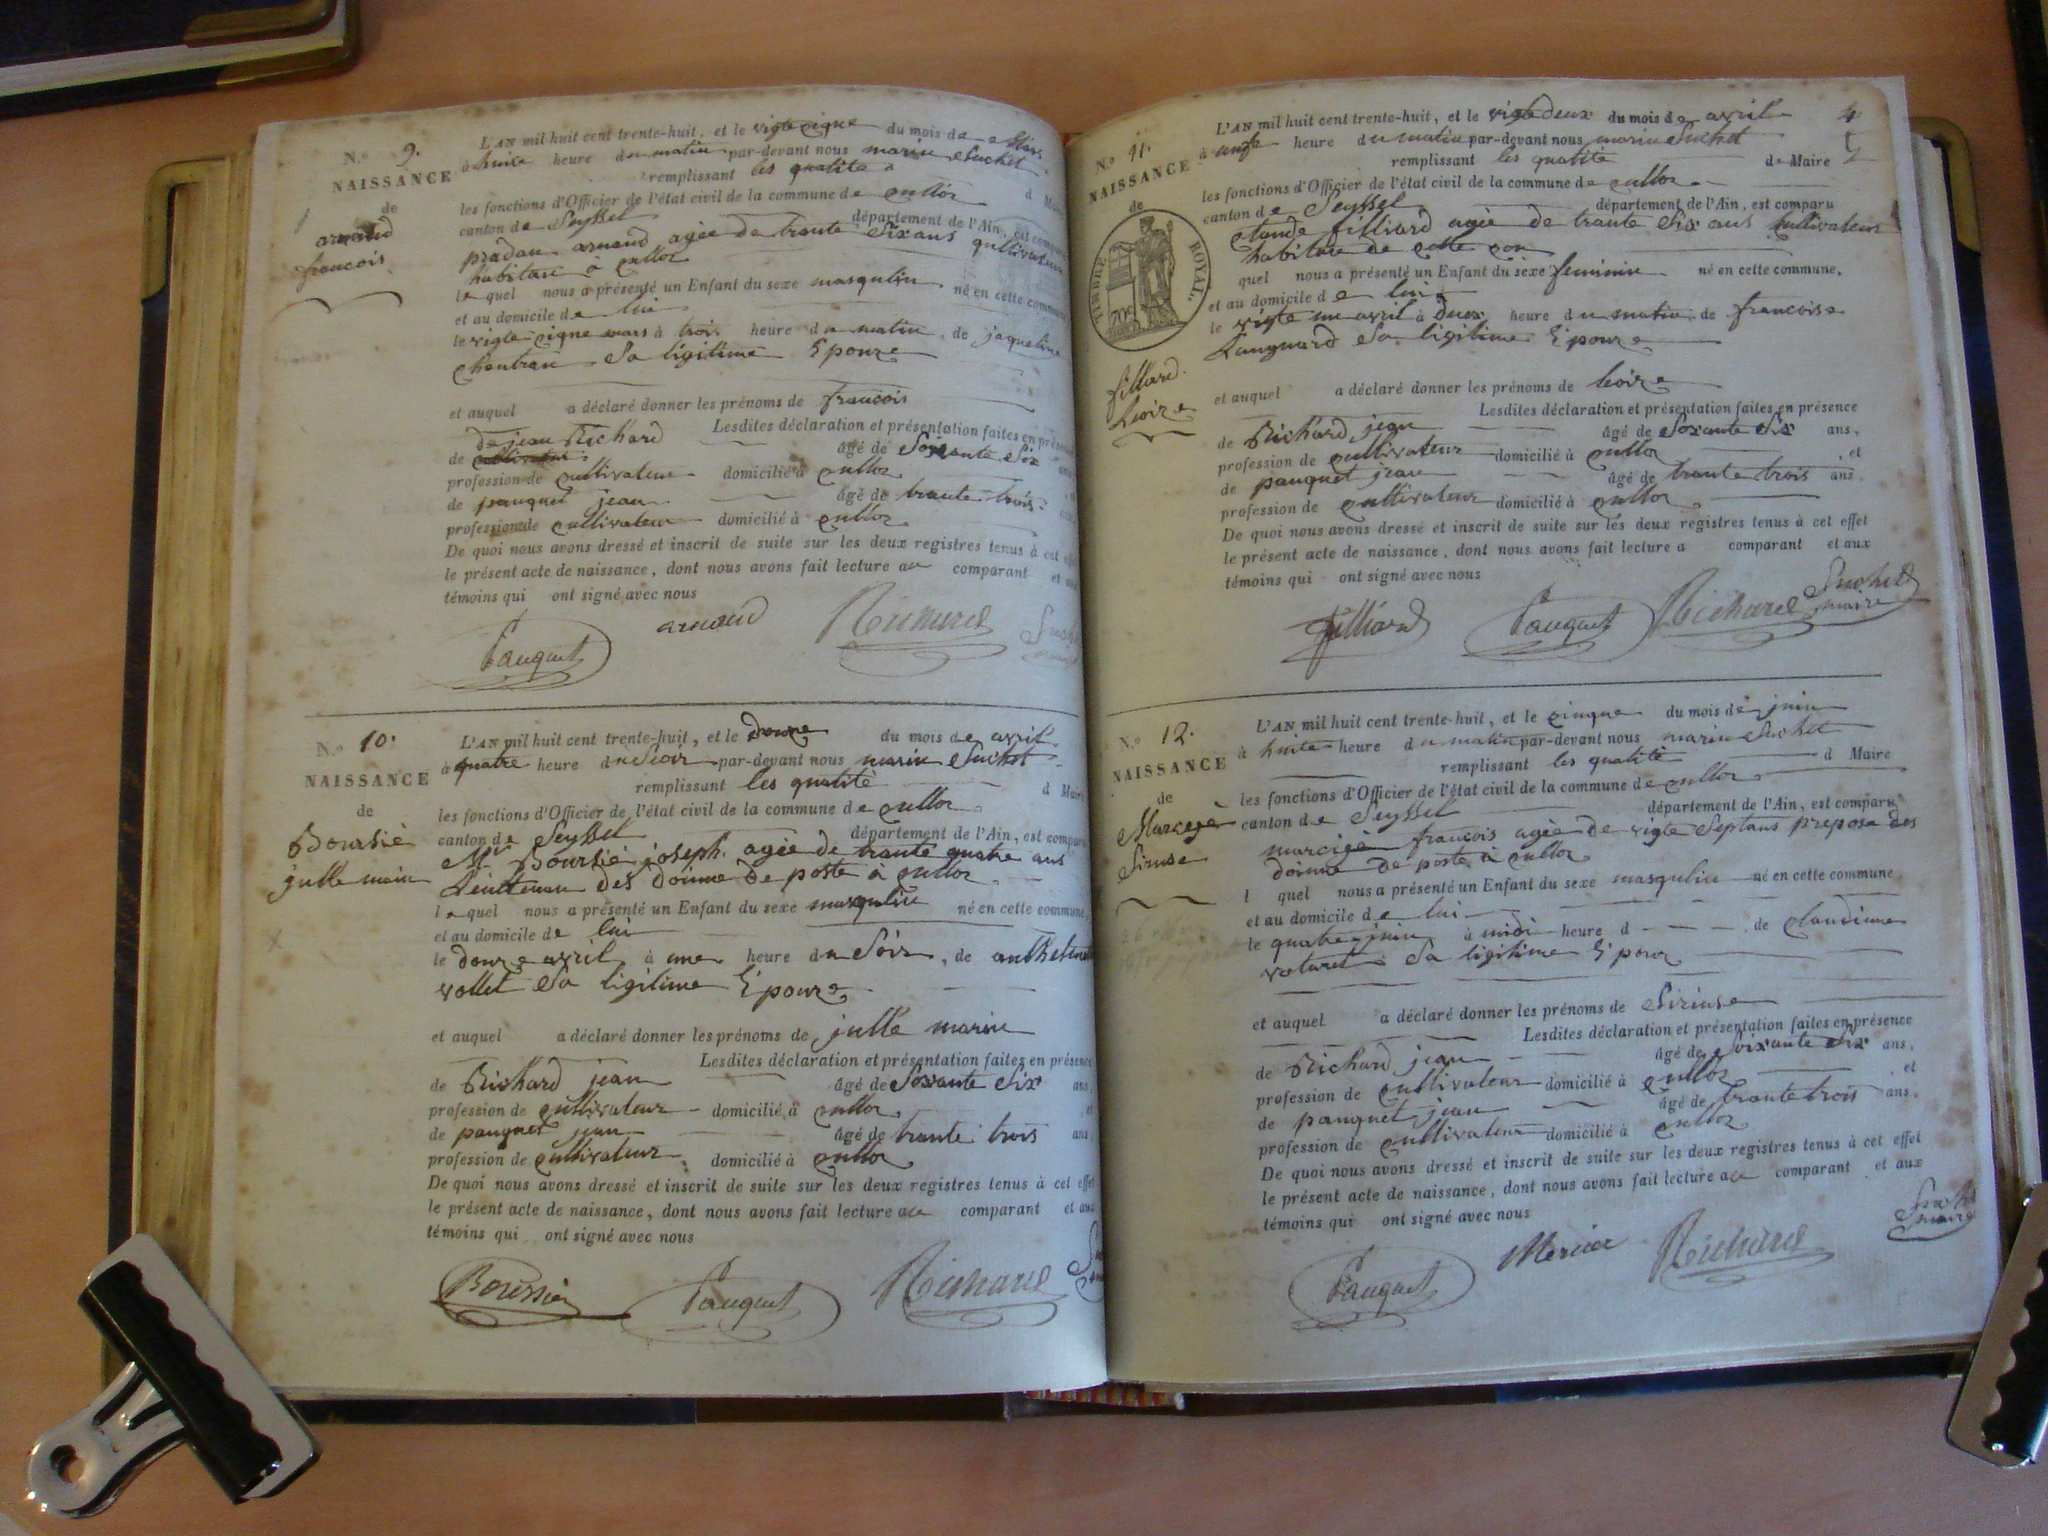 N.o 9.
NAISSANCE
de
arnaud
francois
L'AN mil huit cent trente-huit, et le vigte cigne du mois de Mars
à huite heure du matin par-devant nous marin Suchet
remplissant les qualité d Maire
les fonctions d'Officier de l'état civil de la commune de culloz
canton de Seyssel département de l'Ain, est comparu
pradau arnaud agée de trante Six ans qultivateur
habitan à culloz
le quel nous a présenté un Enfant du sexe masqulin né en cette commune
et au domicile de lui
le vigte cigne mars à trois heure du matin, de jaqueline
chentrau Sa ligitime Epouze
et auquel a déclaré donner les prénoms de francois
Lesdites déclaration et présentation faites en présence
de jean Richard âgé de Soixante Six
profession de cultivateur domicilié à culloz
de pauquet jean âgé de trante trois
profession de cultivateur domicilié à culloz
De quoi nous avons dressé et inscrit de suite sur les deux registres tenus à cet effet
le présent acte de naissance, dont nous avons fait lecture au comparant et aux
témoins qui ont signé avec nous
Pauquet arnaud Richard Suchet
N.o 10.
NAISSANCE
de
Boursié
julle marin
L'AN mil huit cent trente-huit, et le douze du mois de avril
à quatre heure du Soir par-devant nous marin Suchet
remplissant les qualité d Maire
les fonctions d'Officier de l'état civil de la commune de culloz
canton de Seyssel département de l'Ain, est comparu
Mr Boursié joseph agée de trante quatre ans
Leintenan des douine de poste à culloz
le quel nous a présenté un Enfant du sexe masqulin né en cette commune,
et au domicile de lui
le douze avril à une heure du Soir, de
vollet Sa ligitime Epouze
et auquel a déclaré donner les prénoms de julle marin
Lesdites déclaration et présentation faites en présence
de Richard jean âgé de Soxante Six ans,
profession de cultivateur domicilié à culloz et
de pauquet jean âgé de trante trois ans
profession de cultivateur domicilié à culloz
De quoi nous avons dressé et inscrit de suite sur les deux registres tenus à cet effet
le présent acte de naissance, dont nous avons fait lecture au comparant et aux
témoins qui ont signé avec nous
Boursier Pauquet Richard
4
N.o 11.
NAISSANCE
de
TIMBRE ROYAL
filliard
Leoize
L'AN mil huit cent trente-huit, et le vigte deux du mois de avril
à onze heure du matin par-devant nous marin Suchet
remplissant les qualité de Maire
les fonctions d'Officier de l'état civil de la commune de culloz
canton de Seyssel département de l'Ain, est comparu
claude filliard agée de trante Six ans qultivateur
habitan de cette com
quel nous a présenté un Enfant du sexe feminin né en cette commune,
et au domicile de lui
le vigte un avril à deux heure du matin, de francoise
Languard Sa ligitime Epouze
et auquel a déclaré donner les prénoms de leoize
Lesdites déclaration et présentation faites en présence
de Richard jean âgé de Soxante Six ans,
profession de cultivateur domicilié à culloz et
de pauquet jean âgé de trante trois ans.
profession de cultivateur domicilié à culloz
De quoi nous avons dressé et inscrit de suite sur les deux registres tenus à cet effet
le présent acte de naissance, dont nous avons fait lecture a comparant et aux
témoins qui ont signé avec nous
filliard Pauquet Richard Suchet maire
N.o 12.
NAISSANCE
de
L'AN mil huit cent trente-huit, et le cinque du mois de juin
à huite heure du matin par-devant nous marin Suchet
remplissant les qualité d Maire
les fonctions d'Officier de l'état civil de la commune de culloz
canton de Seyssel département de l'Ain, est comparu
francois agée de vigte Sept ans preposé des
douine de poste à culloz
l quel nous a présenté un Enfant du sexe masqulin né en cette commune,
et au domicile de lui
le quatre juin à midi heure d de claudine
Sa ligitime Epouz
et auquel a déclaré donner les prénoms de
Lesdites déclaration et présentation faites en présence
de Richard jean âgé de Soixante Six ans,
profession de cultivateur domicilié à culloz et
de pauquet jean âgé de trante trois ans.
profession de cultivateur domicilié à culloz
De quoi nous avons dressé et inscrit de suite sur les deux registres tenus à cet effet
le présent acte de naissance, dont nous avons fait lecture au comparant et aux
témoins qui ont signé avec nous
Pauquet Mercier Richard Suchet maire